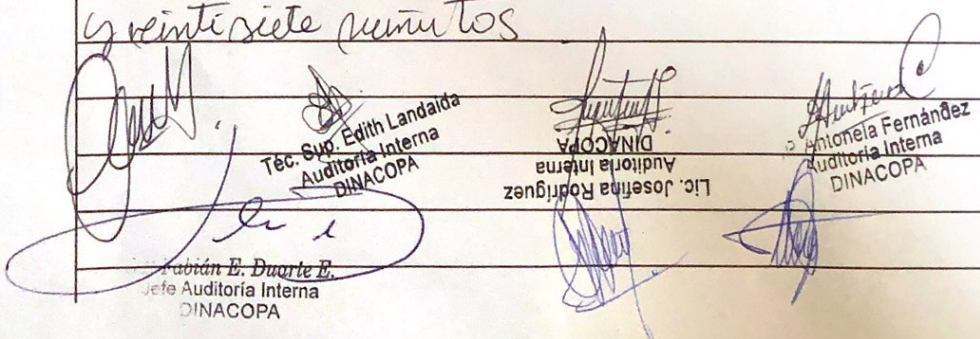 y veintisiete minutos
Téc. Sup. Edith Landaida
Auditoría Interna
DINACOPA
Lic. Josefina Rodríguez
Auditoria Interna
DINACOPA
Antonela Fernández
Auditoría Interna
DINACOPA
Fabián E. Duarte E.
Jefe Auditoría Interna
DINACOPA